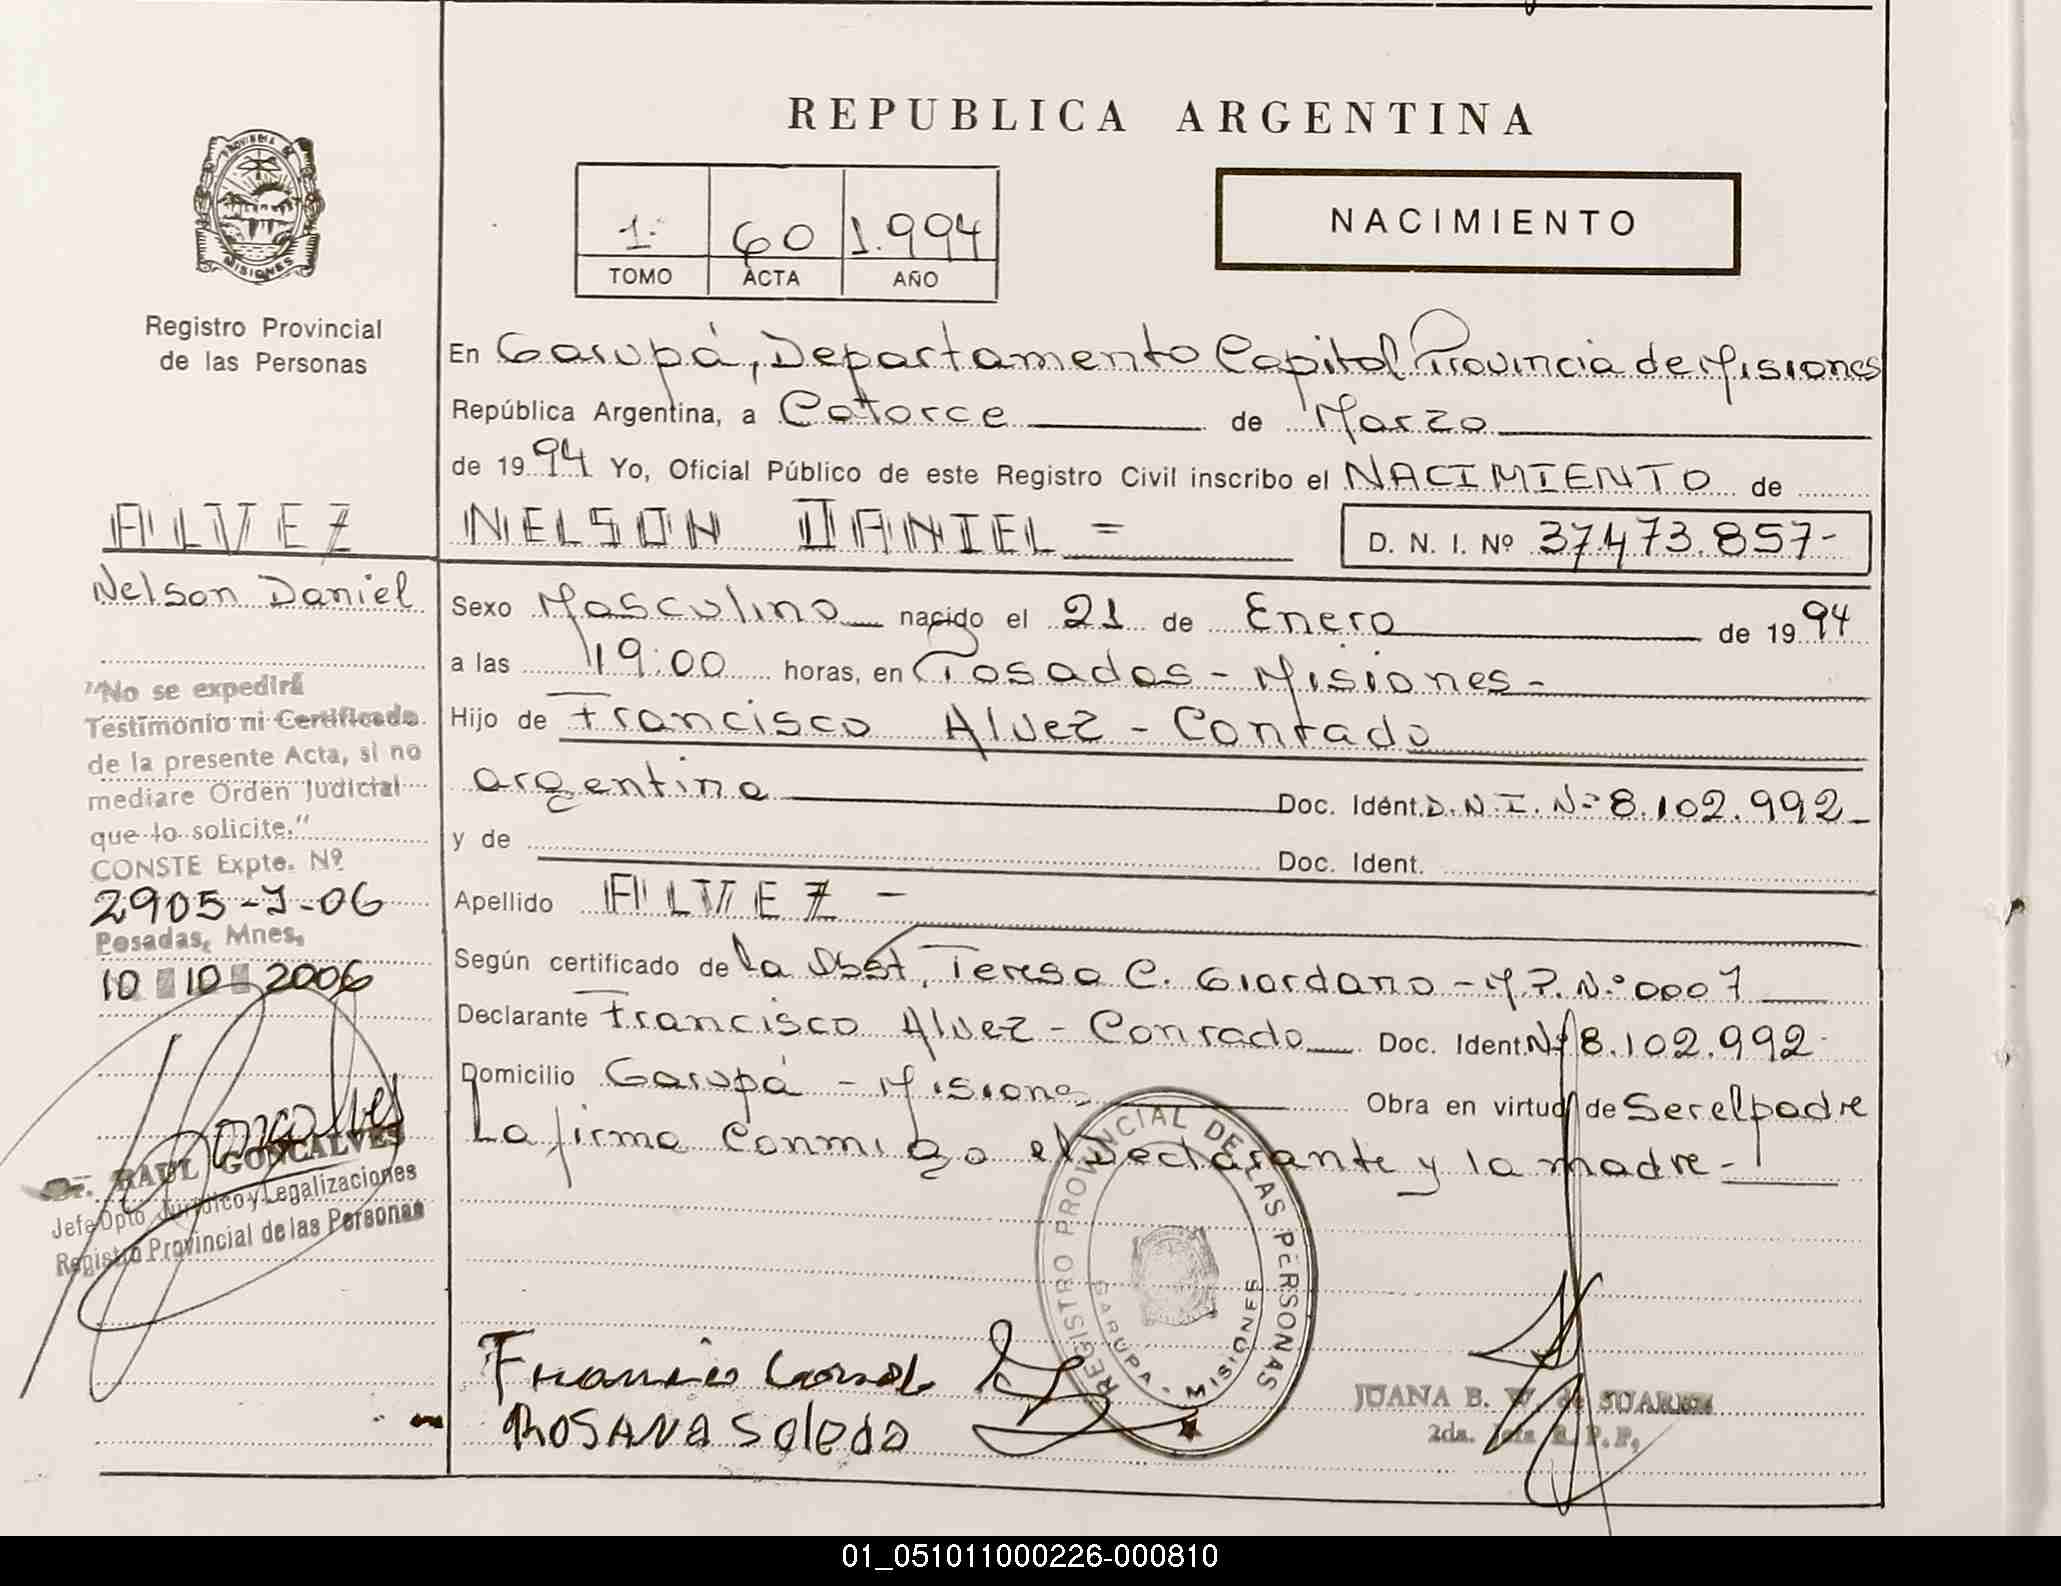 REPUBLICA ARGENTINA
PROVINCIA DE
MISIONES
Registro Provincial
de las Personas
1. 60 1.994
TOMO ACTA AÑO
NACIMIENTO
En Garupá, Departamento Capital Provincia de Misiones
República Argentina, a Catorce de Marzo
de 1994 Yo, Oficial Público de este Registro Civil inscribo el NACIMIENTO de
NELSON DANIEL =
D. N. I. Nº 37.473.857-
Sexo Masculino nacido el 21 de Enero de 1994
a las 19:00 horas, en Posadas - Misiones -
Hijo de Francisco Alvez - Conrado
argentina Doc. Idént. D.N.I. Nº 8.102.992
y de Doc. Ident.
Apellido ALVEZ -
Según certificado de la Obst. Teresa C. Giordano - M.P. Nº 0007
Declarante Francisco Alvez - Conrado Doc. Ident. Nº 8.102.992
Domicilio Garupá - Misiones Obra en virtud de Ser el padre
La firma Conmigo el Declarante y la madre -
ALVEZ
Nelson Daniel
"No se expedirá
Testimonio ni Certificado
de la presente Acta, si no
mediare Orden Judicial
que lo solicite."
CONSTE Expte. Nº
2905-J-06
Posadas, Mnes,
10 10 2006
Dr. RAUL GONCALVES
Jefe Dpto. Jurídico y Legalizaciones
Registro Provincial de las Personas
REGISTRO PROVINCIAL DE LAS PERSONAS
GARUPA - MISIONES
ROSANA Soleda
JUANA B. W. de SUAREZ
2da. Jefa R. P. P.
01_051011000226-000810